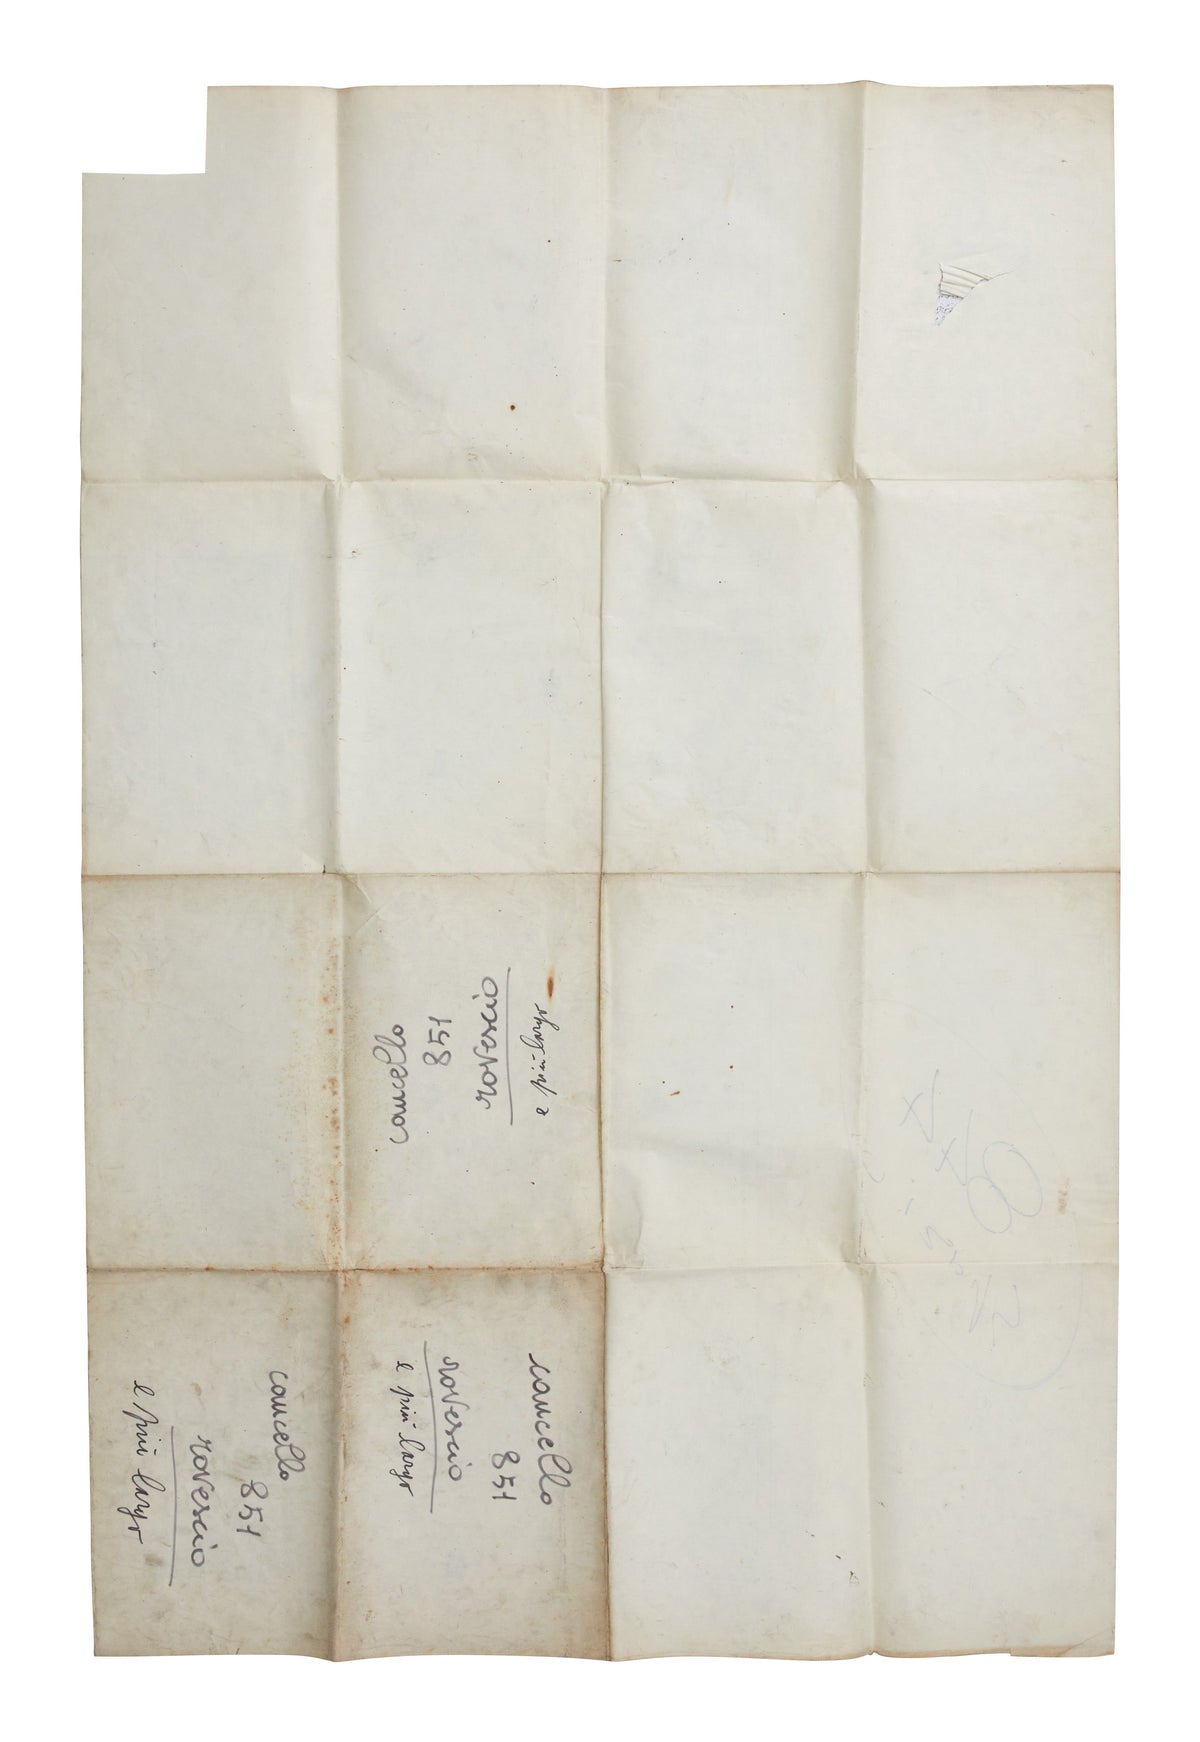 cancello
851
rovescio
e più largo
cancello
851
rovescio
e più largo
cancello
851
rovescio
e più largo